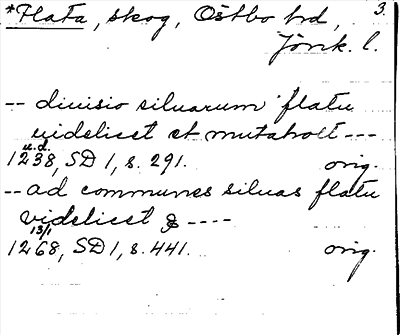 *Flata, skog, Östbo hrd, 3.
Jönk. l.
-- divisio siluarum flatu
videlicet et mutaholt ---
u.d.
1238, SD 1, s. 291. orig.
-- ad communes siluas flatu
videlicet & ----
13/1
1268, SD 1, s. 441. orig.